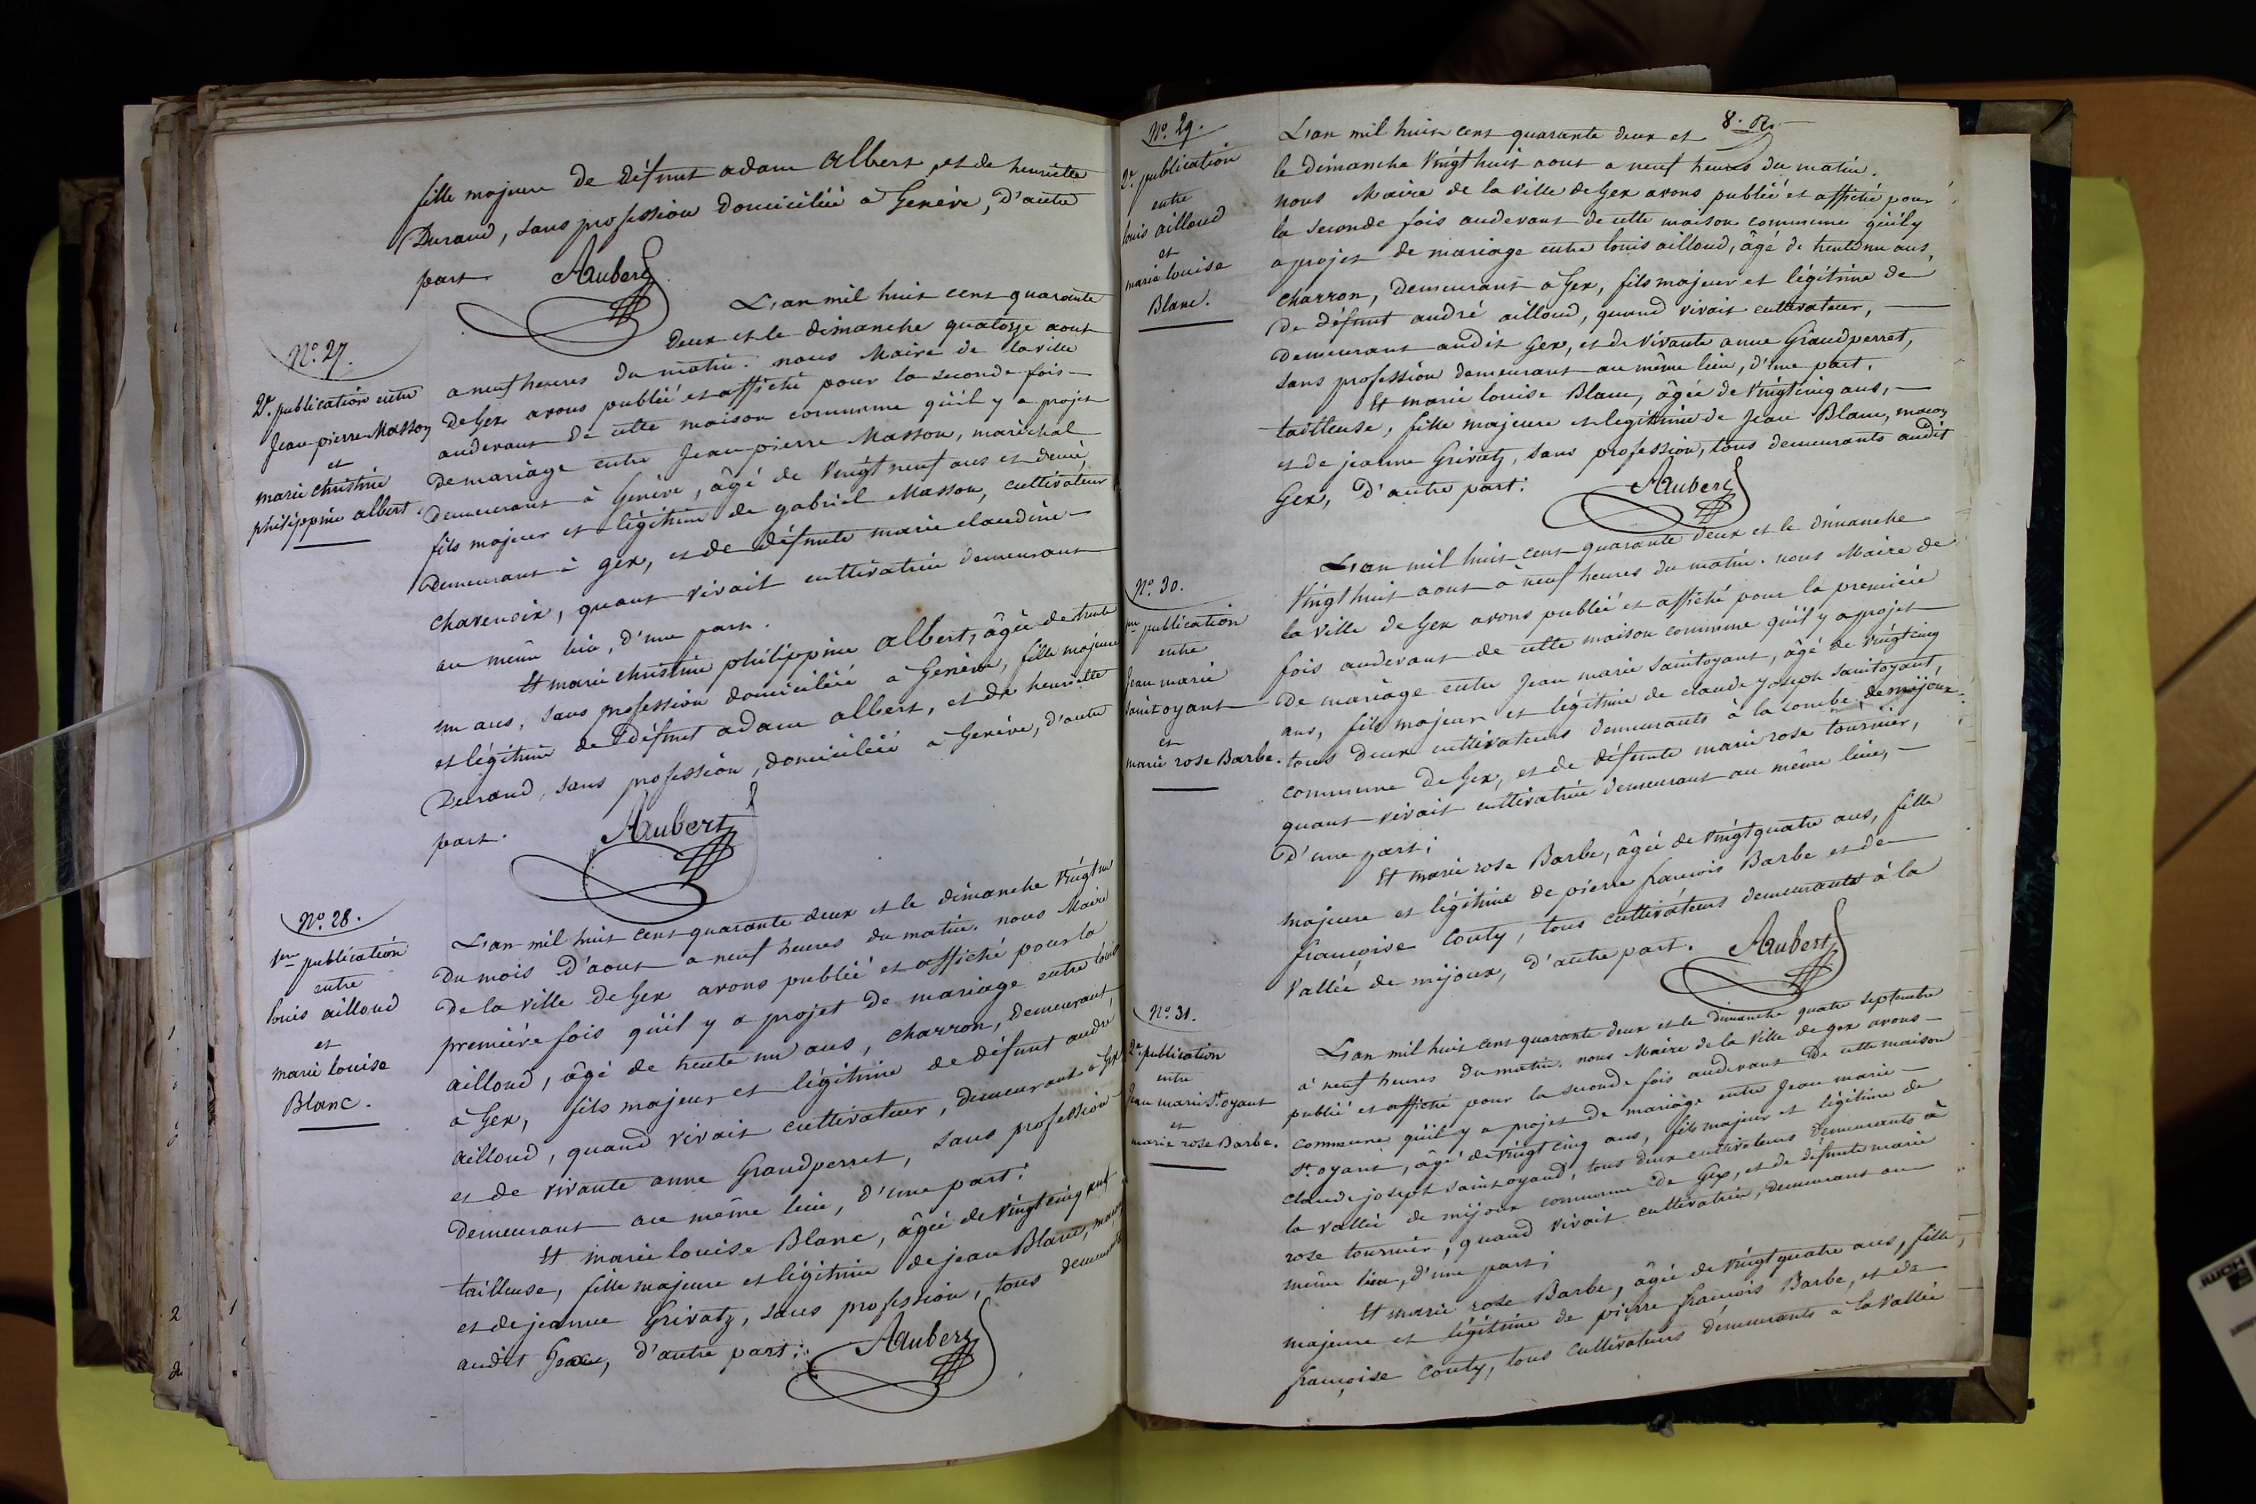 fille majeure de défunt adam albert et de henriette
Durand, sans profession domiciliée à Genève, d'autre
part. Aubert
N.º 27.
2e. publication entre
Jean pierre Masson
et
marie christine
philippine albert.
L'an mil huit cent quarante
deux et le dimanche quatorze aout
a neuf heures du matin. nous Maire de la ville
de Gex avons publié et affiché pour la seconde fois
audevant de cette maison commune qu'il y a projet
de mariage entre Jean pierre Masson, maréchal
demeurant à Genève, âgé de vingt neuf ans et demi,
fils majeur et légitime de gabriel Masson, cultivateur
demeurant à gex, et de défunte marie claudine
chavenoix, quant vivait cultivatrice demeurant
au même lieu, d'une part.
Et marie christine philippine albert, âgée de trente
un ans, sans profession domiciliée à Genève, fille majeure
et légitime de défunt adam albert, et de henriette
Durand, sans profession, domiciliée à Genève, d'autre
part. Aubert
N.º 28.
1ere publication
entre
louis ailloud
et
marie louise
Blanc.
L'an mil huit cent quarante deux et le dimanche vingt un
du mois d'aout a neuf heures du matin. nous Maire
de la ville de Gex avons publié et affiché pour la
première fois qu'il y a projet de mariage entre louis
ailloud, âgé de trente un ans, charron, demeurant
à Gex, fils majeur et légitime de défunt andré
ailloud, quand vivait cultivateur, demeurant à Gex
et de vivante anne Grandperret, sans profession
demeurant au même lieu, d'une part.
Et marie louise Blanc, âgée de vingt cinq ans
tailleuse, fille majeure et légitime de jean Blanc, maçon
et de jeanne Grivatz, sans profession, tous demeurants
audit Gex, d'autre part. Aubert
8.
N.º 29.
2e. publication
entre
louis ailloud
et
marie louise
Blanc.
L'an mil huit cent quarante deux et
le dimanche vingt huit aout a neuf heures du matin.
nous Maire de la ville de Gex avons publié et affiché pour
la seconde fois audevant de cette maison commune qu'il y
a projet de mariage entre louis ailloud, âgé de trente un ans,
charron, demeurant à Gex, fils majeur et légitime de
de défunt andré ailloud, quand vivait cultivateur,
demeurant audit Gex, et de vivante anne Grandperret,
sans profession demeurant au même lieu, d'une part.
Et marie louise Blanc, âgée de vingt cinq ans,
tailleuse, fille majeure et légitime de Jean Blanc, maçon
et de jeanne Grivatz, sans profession, tous demeurants audit
Gex, d'autre part. Aubert
N.º 30.
1re publication
entre
Jean marie
saintoyant
et
marie rose Barbe.
L'an mil huit cent quarante deux et le dimanche
vingt huit aout à neuf heures du matin. nous Maire de
la ville de Gex avons publié et affiché pour la première
fois audevant de cette maison commune qu'il y a projet
de mariage entre Jean marie saintoyant, âgé de vingt cinq
ans, fils majeur et légitime de claude joseph saintoyant,
tous deux cultivateurs demeurants à la combe de mijoux
commune de Gex, et de défunte marie rose tournier,
quant vivait cultivatrice demeurant au même lieu,
d'une part;
Et marie rose Barbe, âgée de vingt quatre ans, fille
majeure et légitime de pierre francois Barbe et de
françoise Couty, tous cultivateurs demeurants à la
vallée de mijoux, d'autre part. Aubert
N.º 31.
2e. publication
entre
Jean marie St. oyant
et
marie rose Barbe.
L'an mil huit cent quarante deux et le dimanche quatre septembre
à neuf heures du matin. nous Maire de la ville de gex avons
publié et affiché pour la seconde fois audevant de cette maison
commune qu'il y a projet de mariage entre Jean marie
St. oyant, âgé de vingt cinq ans, fils majeur et légitime de
claude joseph saintoyand, tous deux cultivateurs demeurants à
la vallée de mijoux commune de Gex, et de défunte marie
rose tournier, quand vivait cultivatrice, demeurant au
même lieu, d'une part;
Et marie rose Barbe, âgée de vingt quatre ans, fille
majeure et légitime de pierre francois Barbe, et de
françoise Couty, tous cultivateurs demeurants à la vallée